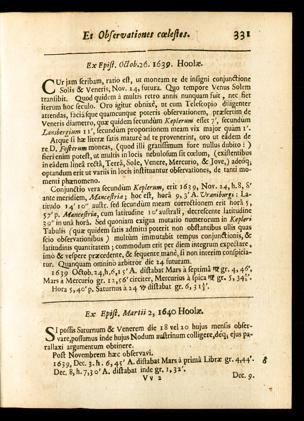 Et Observationes cœlestes. 331
Ex Epist. Octob. 26. 1639. Hoolæ.
CUr jam scribam, ratio est, ut moneam te de insigni conjunctione
Solis & Veneris, Nov. 24, futura. Quo tempore Venus Solem
transibit. Quod quidem à multis retro annis nunquam fuit, nec fiet
iterum hoc seculo. Oro igitur obnixè, ut cum Telescopio diligenter
attendas, faciásque quamcunque poteris observationem, præsertim de
Veneris diametro, quæ quidem secundum Keplerum esset 7', secundum
Lansbergium 11', secundum proportionem meam vix major quam 1'.
Atque si hæ literæ satis maturè ad te provenerint, oro ut eâdem de
re D. Fosterum moneas, (quod illi gratissimum fore nullus dubito:)
fieri enim potest, ut multis in locis nebulosum sit cœlum, (existentibus
in eâdem lineâ rectâ, Terrâ, Sole, Venere, Mercurio, & Jove,) adeóq,
optandum erit ut variis in locis instituantur observationes, de tanti mo-
menti phænomeno.
Conjunctio vera secundum Keplerum, erit 1639, Nov. 24, h, 8, 8'
ante meridiem, Mancestriæ; hoc est, horâ 9, 3' A. Uraniburgi: La-
titudo 14' 10'' austr. sed secundum meam correctionem erit horâ 5,
57' p. Mancestriæ, cum latitudine 10' australi, decrescente latitudine
30' in unâ horâ. Sed quoniam exigua mutatio numerorum in Kepleri
Tabulis (quæ quidem satis admitti poterit non obstantibus ullis quas
scio observationibus) multùm immutabit tempus conjunctionis, &
latitudinis quantitatem; commodum erit per diem integrum expectare,
imo & vespere præcedente, & sequente manè, si non interim conspicia-
tur. Quanquam omnino arbitror die 24 futuram.
1639 Octob. 24, h, 6, 15' A. distabat Mars à septimâ ♍ gr. 4, 46',
Mars à Mercurio gr. 12, 56' circiter, Mercurius à spica ♍ gr. 5, 34½'.
Hora 5, 40' p. Saturnus à 24 ♑ distabat gr. 6, 31½'.
Ex Epist. Martii 2, 1640 Hoolæ.
SI possis Saturnum & Venerem die 18 vel 20 hujus mensis obser-
vare, possumus inde hujus Nodum austrinum colligere, déq; ejus pa-
rallaxi argumentum obtinere.
Post Novembrem hæc observavi.
1639, Dec. 3. h. 6, 45' A. distabat Mars à primâ Libræ gr. 4, 44'.
Dec. 8, h. 7, 30' A. distabat inde gr. 1, 32'.
V v 2 Dec. 9.